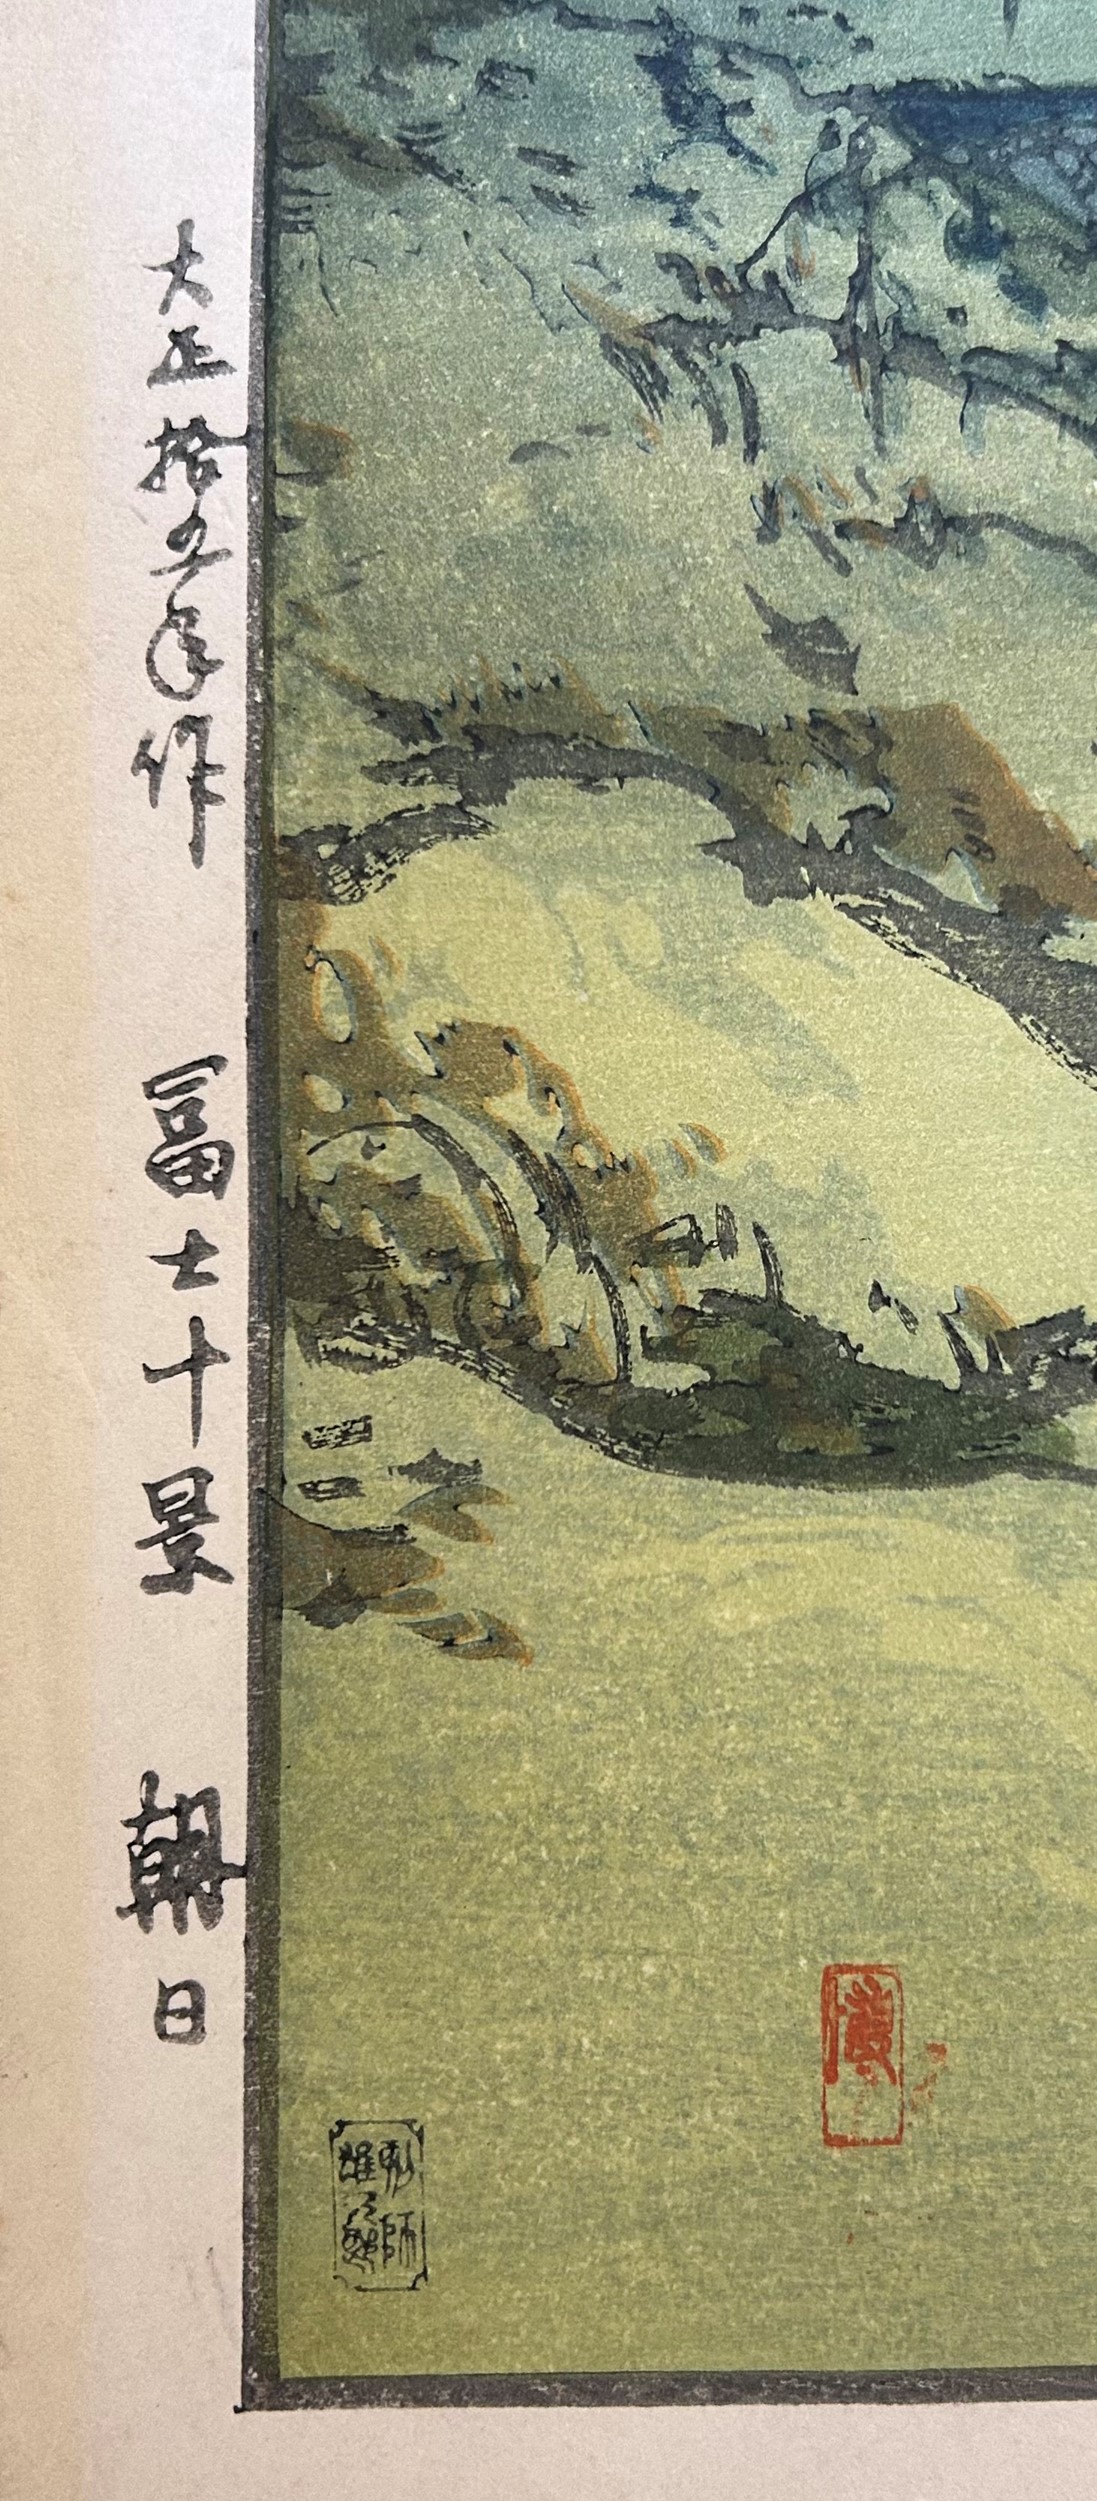 大正拾五年作 冨士十景 朝日
博
彫師
雄造